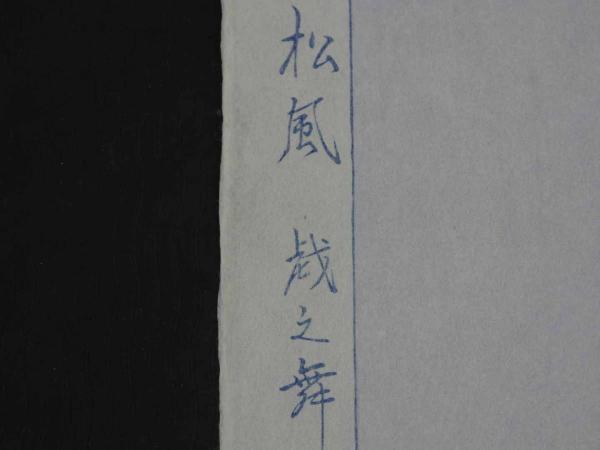 松風 戯之舞